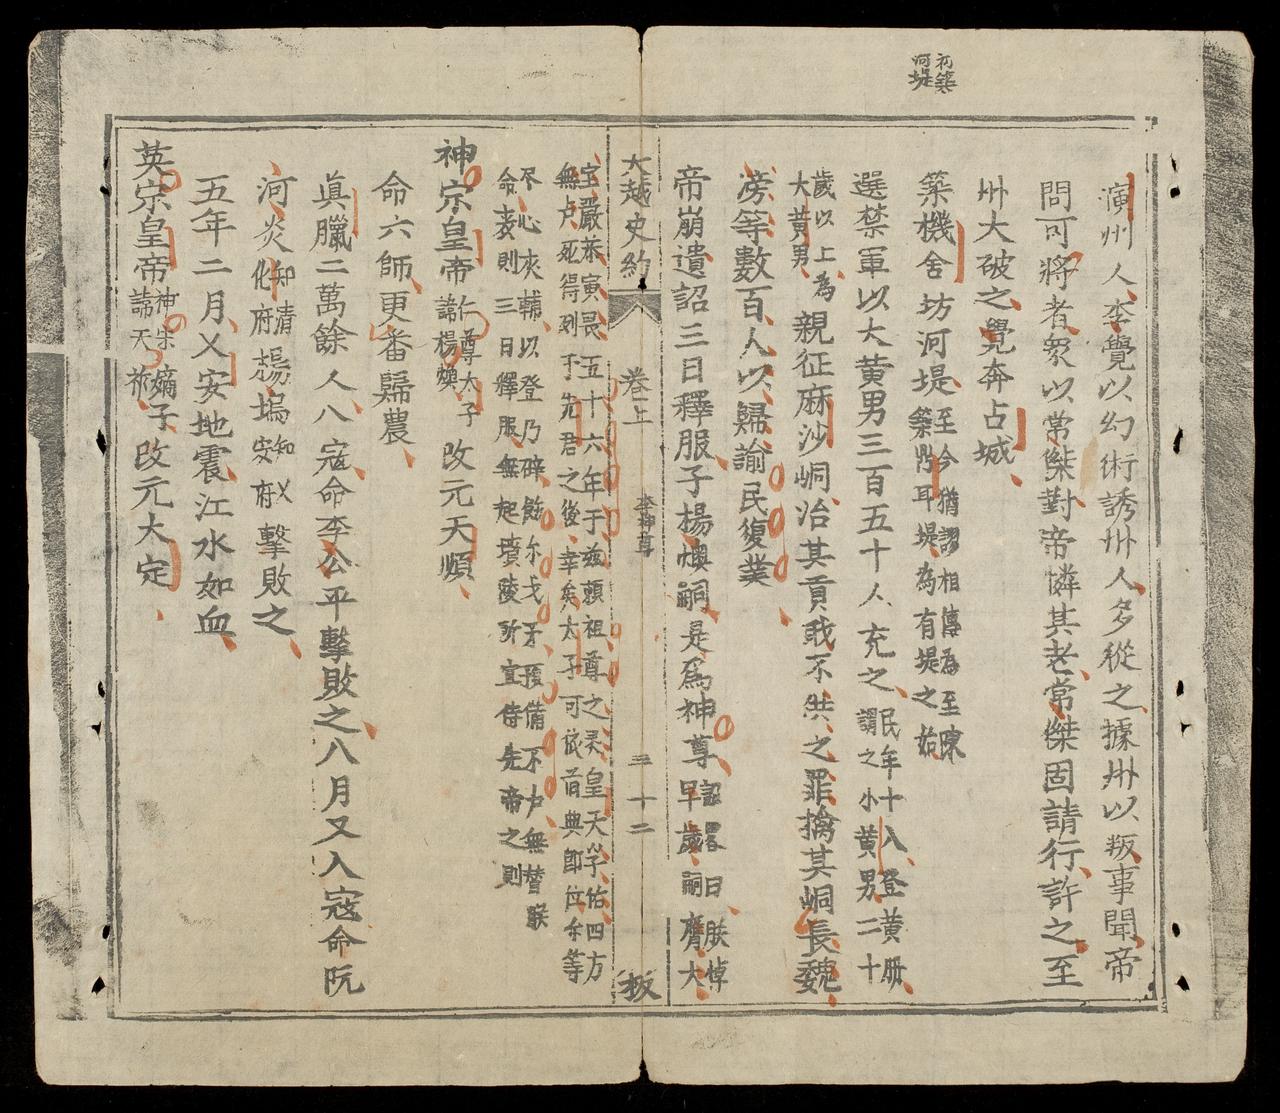 初築
河堤
演州人李覺以幻術誘州人多從之據州以叛事聞帝
問可將者衆以常傑對帝憐其老常傑固請行許之至
州大破之覺奔占城
築機舍坊河堤
至今猶謬相傳為至陳
築鼎耳堤為有堤之始
選禁軍以大黃男三百五十人充之
民年十八登黃册
謂之小黃男二十
歲以上為
大黃男
親征麻沙峒治其貢我不供之罪擒其峒長魏
滂等數百人以歸諭民復業
帝崩遺詔三日釋服子楊煥嗣是爲神尊
詔畧曰朕悼
早歲嗣膺大
大越史約
卷上
李神尊
三十二
板
宝嚴恭寅畏五十六年于兹賴祖尊之灵皇天孚佑四方
無虞死得列于先君之後幸矣太子可依前典即位尔等
尽心夾輔以登乃辟餘尔戈矛預備不虞無替朕
命丧則三日釋服無起墳陵所宜侍先帝之則
神宗皇帝
仁尊太子
諱楊煥
改元天順
命六師更番歸農
眞臘二萬餘人入寇命李公平擊敗之八月又入寇命阮
河炎
知清
化府
楊塢
知乂
安府
擊敗之
五年二月乂安地震江水如血
英宗皇帝
神宗嫡子
諱天祚
改元大定